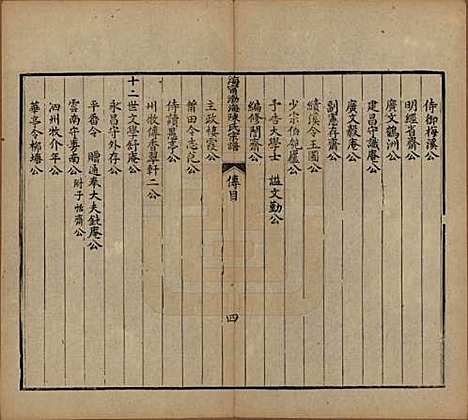 侍御梅溪公
明經省齋公
廣文鶴洲公
建昌守識庵公
廣文毅庵公
副憲存齋公
績溪令玉圃公
少宗伯匏廬公
予告大學士 諡文勤公
編修闇齋公
海甯渤海陳氏宗譜 傳目 四
主政棲霞公
莆田令志范公
侍讀愚亭公
州牧傳香翠軒二公
十二世文學舒庵公
永昌守外存公
平番令 贈通奉大夫銥庵公
雲南守夢南公 附子恬齋公
泗州牧介年公
華亭令柳塘公